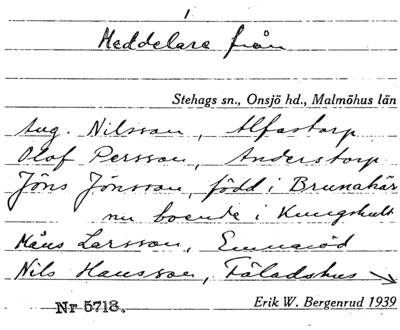 1
Meddelare från
Stehags sn., Onsjö hd., Malmöhus län
Aug. Nilsson, Alfastorp
Olof Persson, Anderstorp
Jöns Jönsson, född i Brunakär
nu boende i Kungshult
Måns Larsson, Emmaröd
Nils Hansson, Fäladshus
Nr 5718. Erik W. Bergenrud 1939